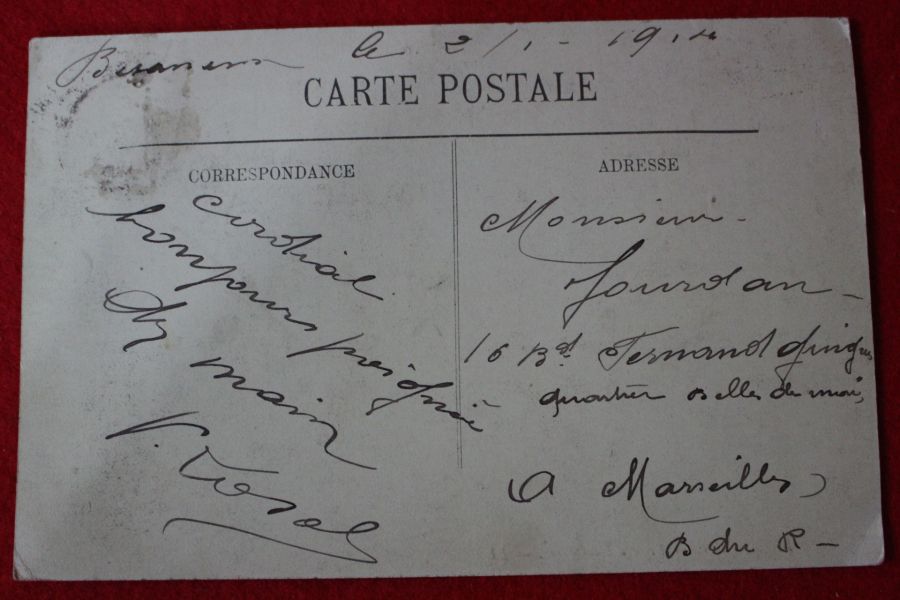 le 2/1 - 1914
CARTE POSTALE
CORRESPONDANCE
cordial
bonjours poignée
de main
V.
ADRESSE
Monsieur -
Jourdan -
16 Bd. Fernand
quartier Belle de mai,
A Marseille
B du R -